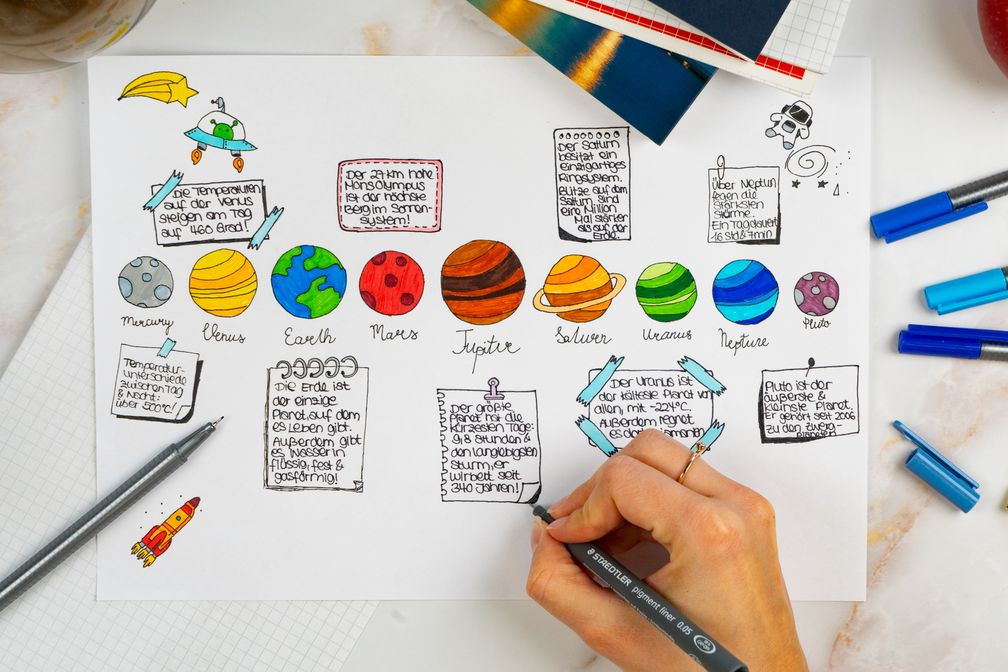 Die Temperaturen
auf der Venus
steigen am Tag
auf 460 Grad!
Der 27 km hohe
Mons Olympus
ist der höchste
Berg im Sonnen-
system!
Der Saturn
besitzt ein
einzigartiges
Ringsystem.
Blitze auf dem
Saturn sind
eine Million
Mal stärker
als auf der
Erde.
Über Neptun
fegen die
stärksten
Stürme.
Ein Tag dauert
16 Std & 7min
Mercury
Venus
Earth
Mars
Jupiter
Saturn
Uranus
Neptune
Pluto
Temperatur-
unterschiede
zwischen Tag
& Nacht:
über 500°C!
Die Erde ist
der einzige
Planet, auf dem
es Leben gibt.
Außerdem gibt
es Wasser in
flüssig, fest &
gasförmig!
Der größte
Planet hat die
kürzesten Tage:
9,8 Stunden &
den langlebigsten
Sturm, er
wirbelt seit
340 Jahren!
Der Uranus ist
der kälteste Planet von
allen, mit -224°C.
Außerdem regnet
es dort
Pluto ist der
äußerste &
kleinste Planet.
Er gehört seit 2006
zu den Zwerg-
planeten
STAEDTLER pigment liner 0.05